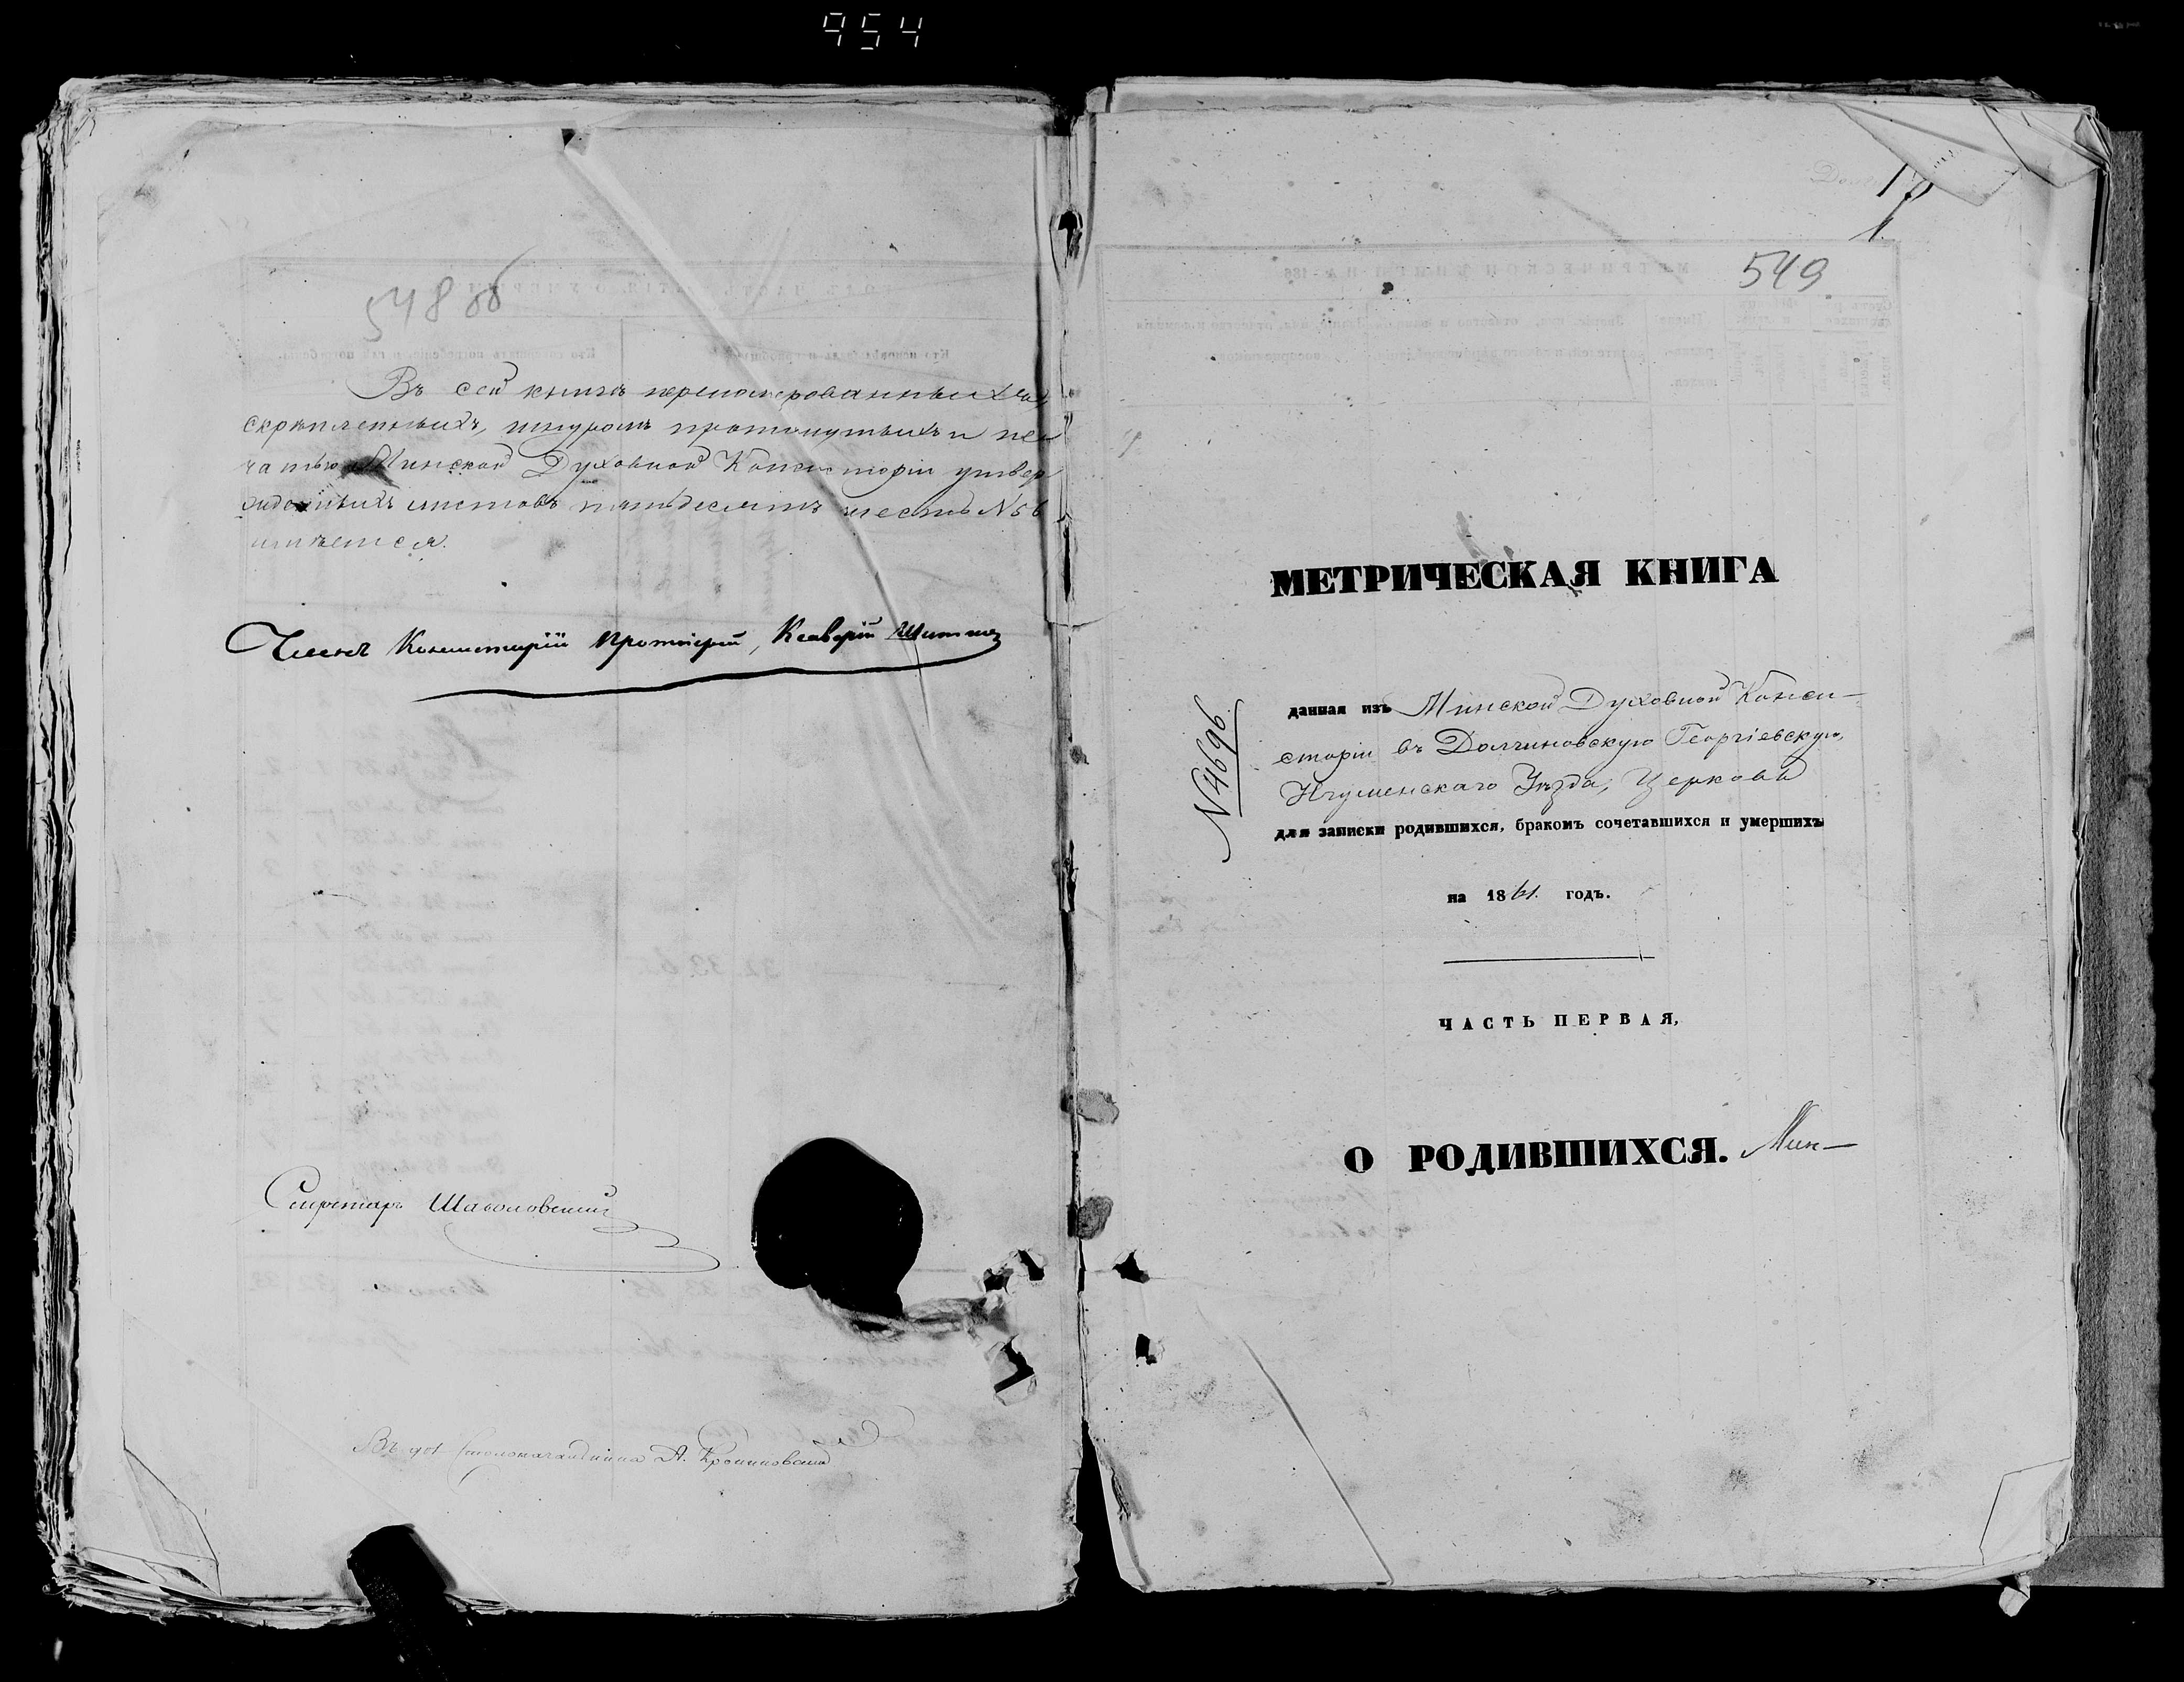 954
548 об
Въ сей книгѣ перенумерованныхъ,
скрѣпленныхъ, шнуромъ протянутыхъ и пе
чатью Минской Духовной Консисторіи утвер
жденныхъ листовъ пятьдесятъ шесть N 56
имѣется.
Членъ Консисторіи Протоіерей, Ксаверій
Секретарь
Въ дол Столоначальника А.
549
МЕТРИЧЕСКАЯ КНИГА
N 4696
данная изъ Минской Духовной Конси-
сторіи въ Долгиновскую Георгіевскую,
Игуменскаго Уѣзда, Церковь
для записки родившихся, бракомъ сочетавшихся и умершихъ
на 1861. годъ.
ЧАСТЬ ПЕРВАЯ,
О РОДИВШИХСЯ. Мин-